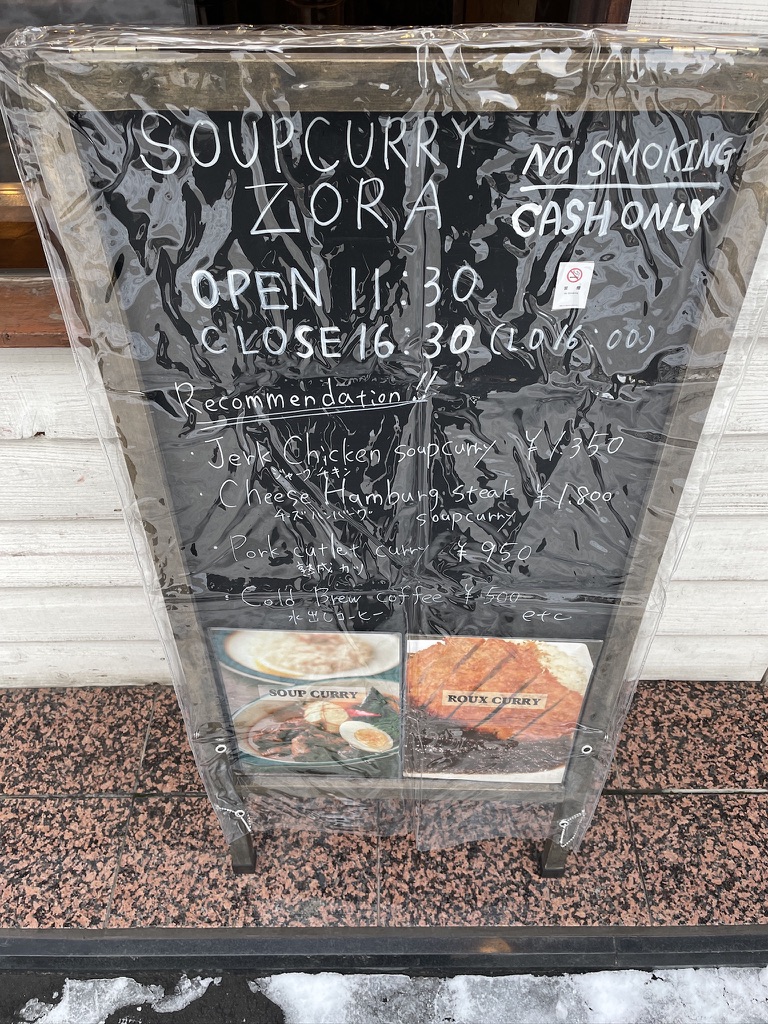 SOUPCURRY
ZORA
NO SMOKING
CASH ONLY
OPEN 11:30
CLOSE 16:30 (LO 16:00)
Recommendation!!
・Jerk Chicken soupcurry ¥1,350
ジャークチキン
・Cheese Hamburg steak ¥1,800
チーズハンバーグ soupcurry
・Pork cutlet curry ¥950
熟成カツ
・Cold Brew coffee ¥500
水出しコーヒー etc
SOUP CURRY
ROUX CURRY